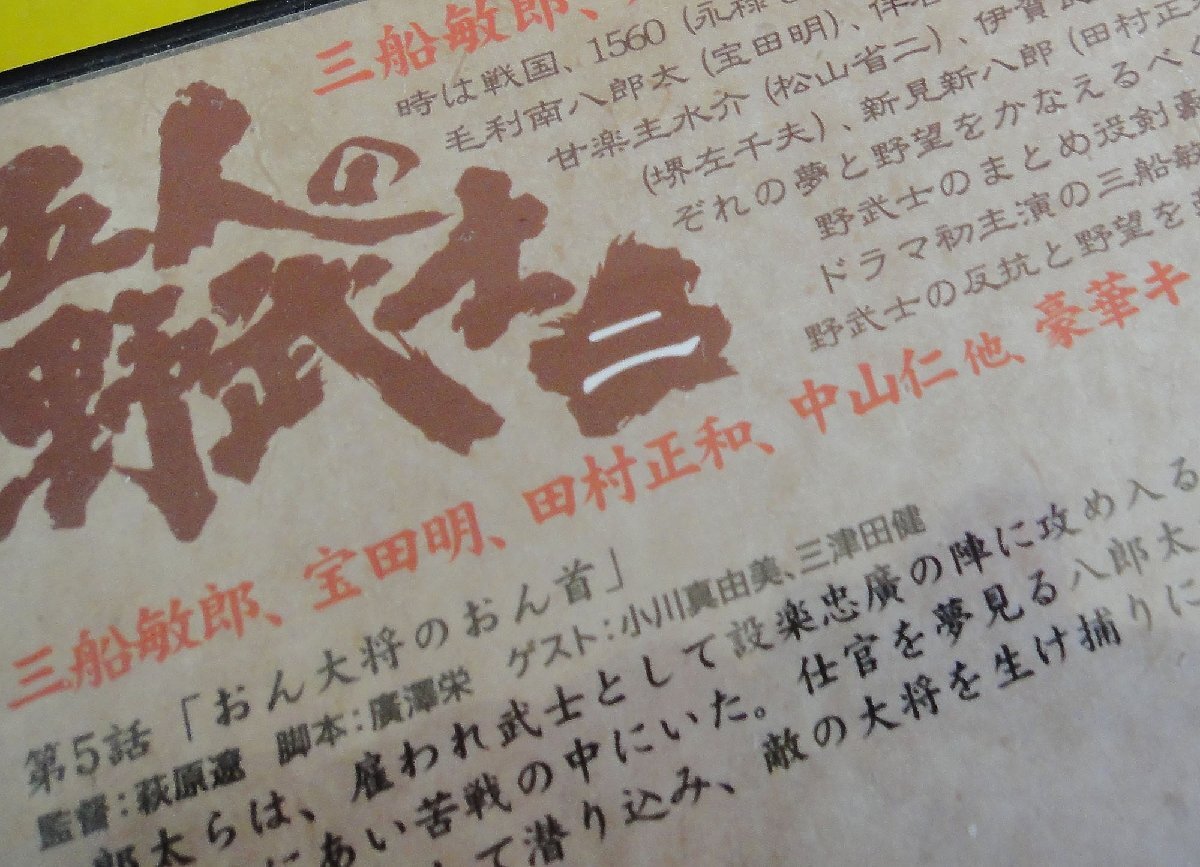 五人の
野武士
二
三船敏郎、
時は戦国、1560(永禄
毛利南八郎太(宝田明)、
甘楽主水介(松山省二)、伊賀
(堺左千夫)、新見新八郎(田村正
ぞれの夢と野望をかなえるべく
野武士のまとめ役剣豪
ドラマ初主演の三船敏
野武士の反抗と野望を
三船敏郎、宝田明、田村正和、中山仁他、豪華キ
第5話「おん大将のおん首」
監督:萩原遼 脚本:廣澤栄 ゲスト:小川真由美、三津田健
郎太らは、雇われ武士として設楽忠廣の陣に攻め入る
にあい苦戦の中にいた。仕官を夢見る八郎太
て潜り込み、敵の大将を生け捕りに